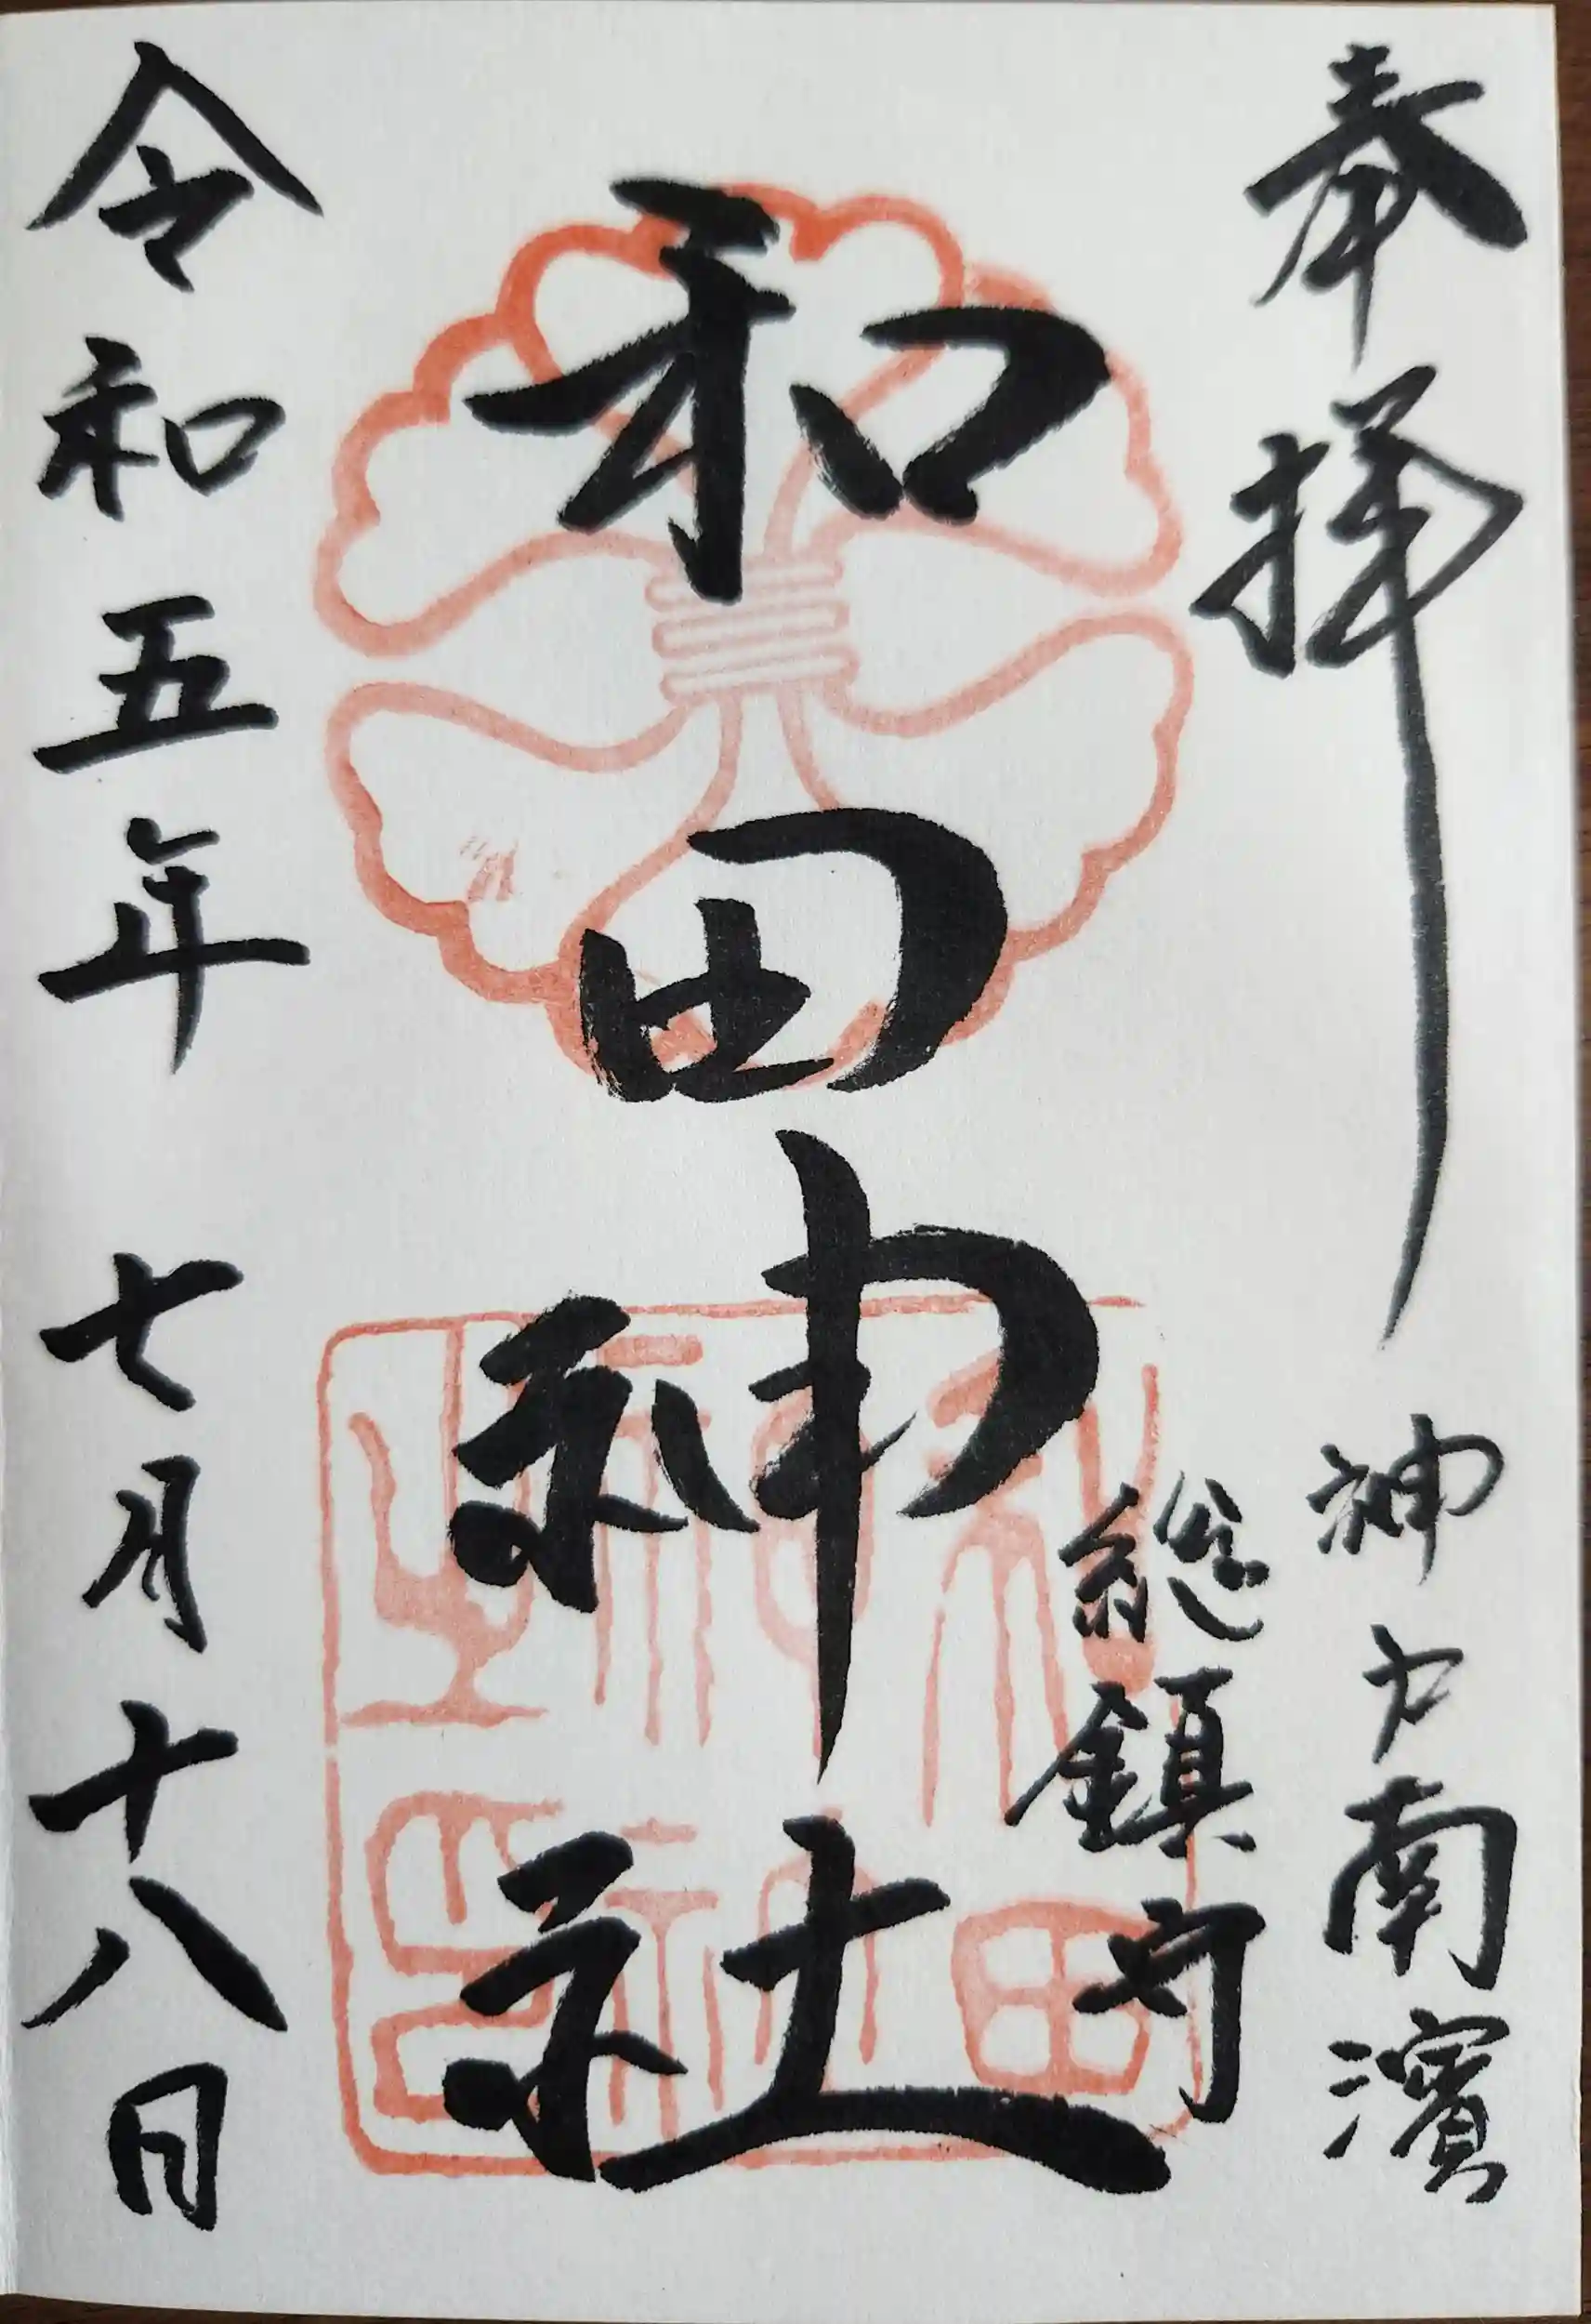 奉拝
神戸南濱
総鎮守
和田神社
令和五年 七月十八日